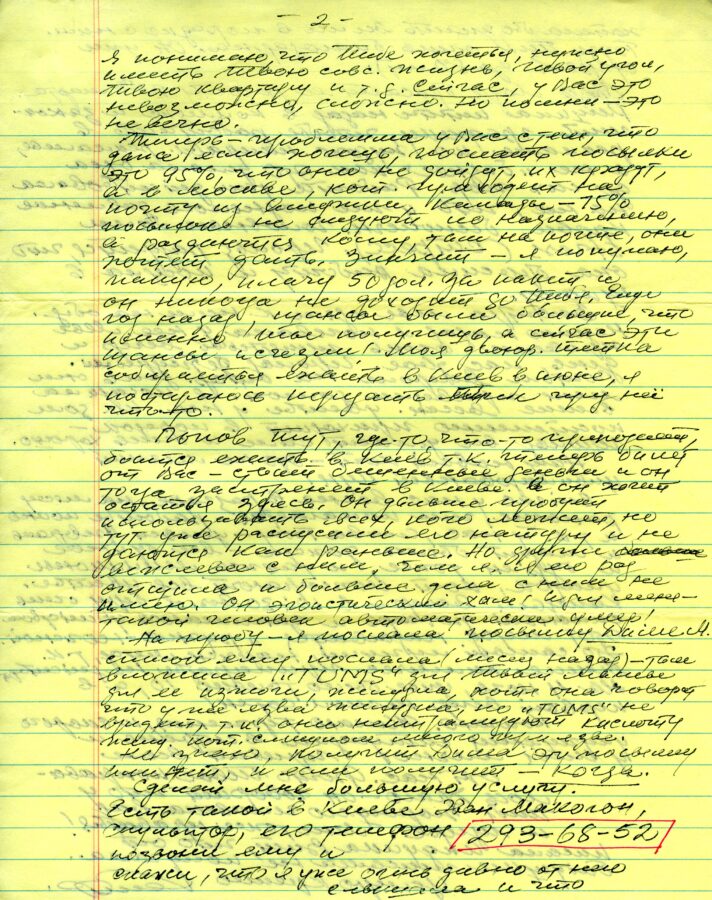 - 2 -
Я понимаю, что Тебе хочется, нужно
иметь Твою собс. жизнь, Твой угол,
Твою квартиру и т.д. Сейчас, у Вас это
невозможно, сложно. Но помни — это
не вечно.
Теперь — проблемма у Вас с тем, что
даже если хочешь, послать посылки
это 95%, что они не дойдут, их крадут,
а в Москве, кот. приходят на
почту из Америки, Канады — 75%
посылок не следуют по назначению,
а раздаются кому, там на почте, они
хотят дать. Значит — я покупаю,
пакую, плачу 50 дол. за пакет и
он никогда не доходит до Тебя. Еще
год назад шансы были большие, что
именно Ты получишь, а сейчас эти
шансы исчезли! Моя двоюр. тетка
собирается ехать в Киев в июне, я
постараюсь передать через неё
что-то.
Попов тут, где-то что-то
боится ехать в Киев т.к. теперь билет
от Вас — стоит бешенные деньги и он
тогда застрянет в Киеве. А он хочет
остаться здесь. Он дальше пробует
использовать всех, кого может, но
тут уже раскусили его натуру и не
даются как раньше. Но другие
вежливее с ним, чем я. Я его раз
и больше дела с ним не
имею. Он эгоистический хам! И для меня —
такой человек автоматически умер!
На пробу — я послала посылку Диме М.
список ему послала (месяц назад) — там
вложила "TUMS" для Твоей мамы
для её изжоги, желудка, хотя она говорит
что у неё язва желудка, но "TUMS" не
вредит, т.к. они нейтрализуют кислоту
желуд. кот. слишком много при язве.
Не знаю, получит Дима эту посылку
или нет, и если получит — когда.
Сделай мне большую услугу.
Есть такой в Киеве Эван Макогон,
скульптор, его телефон 293-68-52
позвони ему и
скажи, что я уже очень давно от него
слышала и что